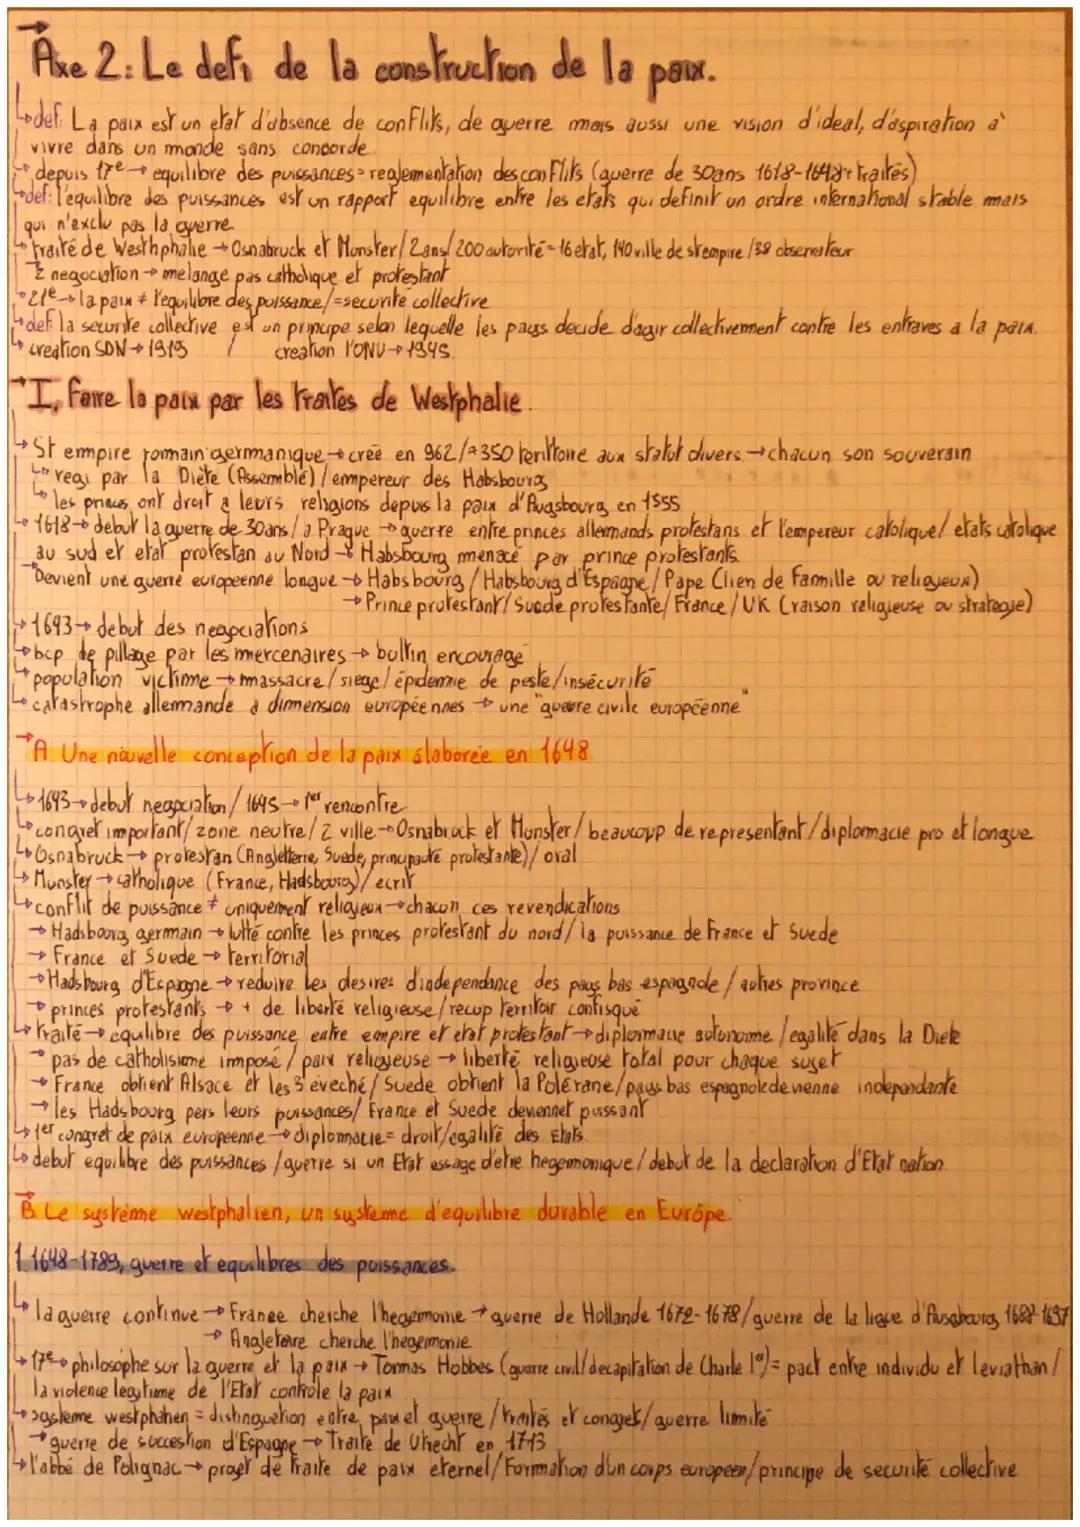 Axe 2: Le defi de la construction de la paix.
↳def: La paix est un etat d'absence de conflits, de guerre mais aussi une vision d'ideal, d'aspiration a'
vivre dans un monde sans concorde.
↳depuis 17e → equilibre des puissances = reglementation des conflits (guerre de 30ans 1618-1648 + traités)
↳def: l'équilibre des puissances est un rapport equilibre entre les etats qui definit un ordre international stable mais
qui n'exclu pas la guerre.
↳traité de Westhphalie → Osnabruck et Monster / 2ans / 200 autorité = 16 etat, 140 ville de st empire / 38 observateur
2 negociation → melange pas catholique et protestant
↳21e → la paix ≠ l'equilibre des puissance / = securité collective
↳def: la securite collective est un principe selon lequelle les pays decide d'agir collectivement contre les entraves a la paix.
↳creation SDN → 1919 / creation l'ONU → 1945
→ I, Faire la paix par les traités de Westphalie.
↳St empire romain germanique → crée en 962 / ≈350 territoire aux statut divers → chacun son souverain
↳regi par la Diète (Assemblé) / empereur des Habsbourg
↳les princes ont droit a leurs religions depuis la paix d'Augsbourg en 1555
↳1618 → debut la guerre de 30ans / a Prague → guerre entre princes allemands protestans et l'empereur catolique / etats catolique
au sud et etat protestan au Nord → Habsbourg menacé par prince protestants.
→Devient une guerre europeenne longue → Habsbourg / Habsbourg d'Espagne / Pape (lien de Fammille ou religieux)
→ Prince protestant / Suede protestante / France / UK (raison religieuse ou strategie)
↳1643 → debut des negociations
↳bcp de pillage par les mercenaires → bultin encouragé
↳population victime → massacre / siege / épidemie de peste / insécurité
↳catastrophe allemande a dimmension européennes → une "guerre civile européenne"
→A Une nouvelle conception de la paix élaborée en 1648
↳1643 → debut negociation / 1645 → 1er rencontre
↳congret important / zone neutre / 2 ville → Osnabruck et Munster / beaucoup de representant / diplomacie pro et longue
↳Osnabruck → protestan (Angleterre, Suede, principauté protestante) / oral
↳Munster → catholique (France, Hadsbourg) / ecrit
↳conflit de puissance ≠ uniquement religieux → chacun ces revendications
→ Hadsbourg germain → lutté contre les princes protestant du nord / la puissance de France et Suede
→ France et Suede → territorial
→ Hadsbourg d'Espagne → reduire les desires d'independance des pays bas espagnole / autres province
→ princes protestants → + de liberté religieuse / recup territoir confisqué
↳traité → equilibre des puissance entre empire et etat protestant → diplormacie autonome / egalité dans la Diete
→ pas de catholisisme imposé / paix religieuse → liberté religieuse total pour chaque sujet
→ France obtient Alsace et les 3 éveché / Suede obtient la Polérane / pays bas espagnole devienne independante
→ les Hadsbourg pers leurs puissances / France et Suede deviennet puissant
↳1er congret de paix europeenne → diplomacie = droit / egalité des Etats.
↳debut equilibre des puissances / guerre si un Etat essage d'etre hegemonique / debut de la declaration d'Etat nation.
→B Le système westphalien, un systeme d'equilibre durable en Europe.
1 1648-1789, guerre et equilibres des puissances.
↳la guerre continue → France cherche l'hegemonie → guerre de Hollande 1672-1678 / guerre de la ligue d'Ausgbourg 1688-1697
→ Angleterre cherche l'hegemonie
↳17e → philosophe sur la guerre et la paix → Tommas Hobbes (guerre civil / decapitation de Charle 1er) = pact entre individu et leviathan /
la violence legitime de l'Etat controle la paix
↳systeme westphalien = distinguetion entre paix et guerre / traités et congret / guerre limité
→ guerre de succestion d'Espagne → Traité de Utrecht en 1713
↳l'abbé de Polignac → projet de traite de paix eternel / Formation d'un corps europeen / principe de securité collective